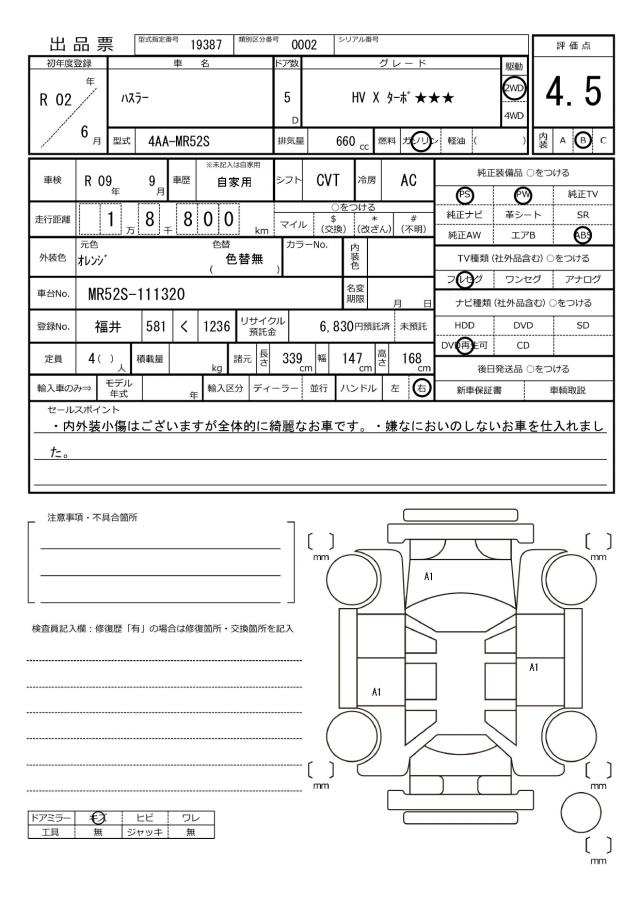 出品票 型式指定番号 19387 類別区分番号 0002 シリアル番号
評価点
4.5
内装 A B C
初年度登録 車名 ドア数 グレード 駆動
R 02 年 6 月 ﾊｽﾗｰ 5 D HV X ﾀｰﾎﾞ★★★ 2WD 4WD
型式 4AA-MR52S 排気量 660 cc 燃料 ガソリン 軽油 ( )
車検 R 09 年 9 月 車歴 ※未記入は自家用 自家用 シフト CVT 冷房 AC
走行距離 1 万 8 千 8 0 0 km ○をつける
マイル $ (交換) * (改ざん) # (不明)
外装色 元色 ｵﾚﾝｼﾞ 色替 ( 色替無 ) カラーNo. 内装色
車台No. MR52S-111320 名変期限 月 日
登録No. 福井 581 く 1236 リサイクル預託金 6,830円預託済 未預託
定員 4 ( ) 人 積載量 kg 諸元 長さ 339 cm 幅 147 cm 高さ 168 cm
輸入車のみ⇒ モデル年式 年 輸入区分 ディーラー 並行 ハンドル 左 右
純正装備品 ○をつける
PS PW 純正TV
純正ナビ 革シート SR
純正AW エアB ABS
TV種類 (社外品含む) ○をつける
フルセグ ワンセグ アナログ
ナビ種類 (社外品含む) ○をつける
HDD DVD SD
DVD再生可 CD
後日発送品 ○をつける
新車保証書 車輌取説
セールスポイント
・内外装小傷はございますが全体的に綺麗なお車です。・嫌なにおいのしないお車を仕入れまし
た。
注意事項・不具合箇所
検査員記入欄：修復歴「有」の場合は修復箇所・交換箇所を記入
ドアミラー キズ ヒビ ワレ
工具 無 ジャッキ 無
〔 〕 mm 〔 〕 mm
A1
A1
A1
〔 〕 mm 〔 〕 mm
〔 〕 mm